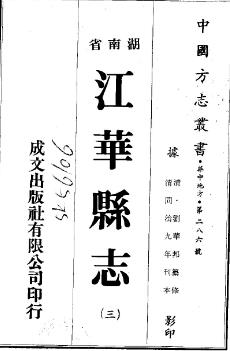 中國方志叢書・華中地方・第二八六號
據
清・劉華邦等修
清同治九年刊本
影印
湖南省
江華縣志
(三)
成文出版社有限公司印行